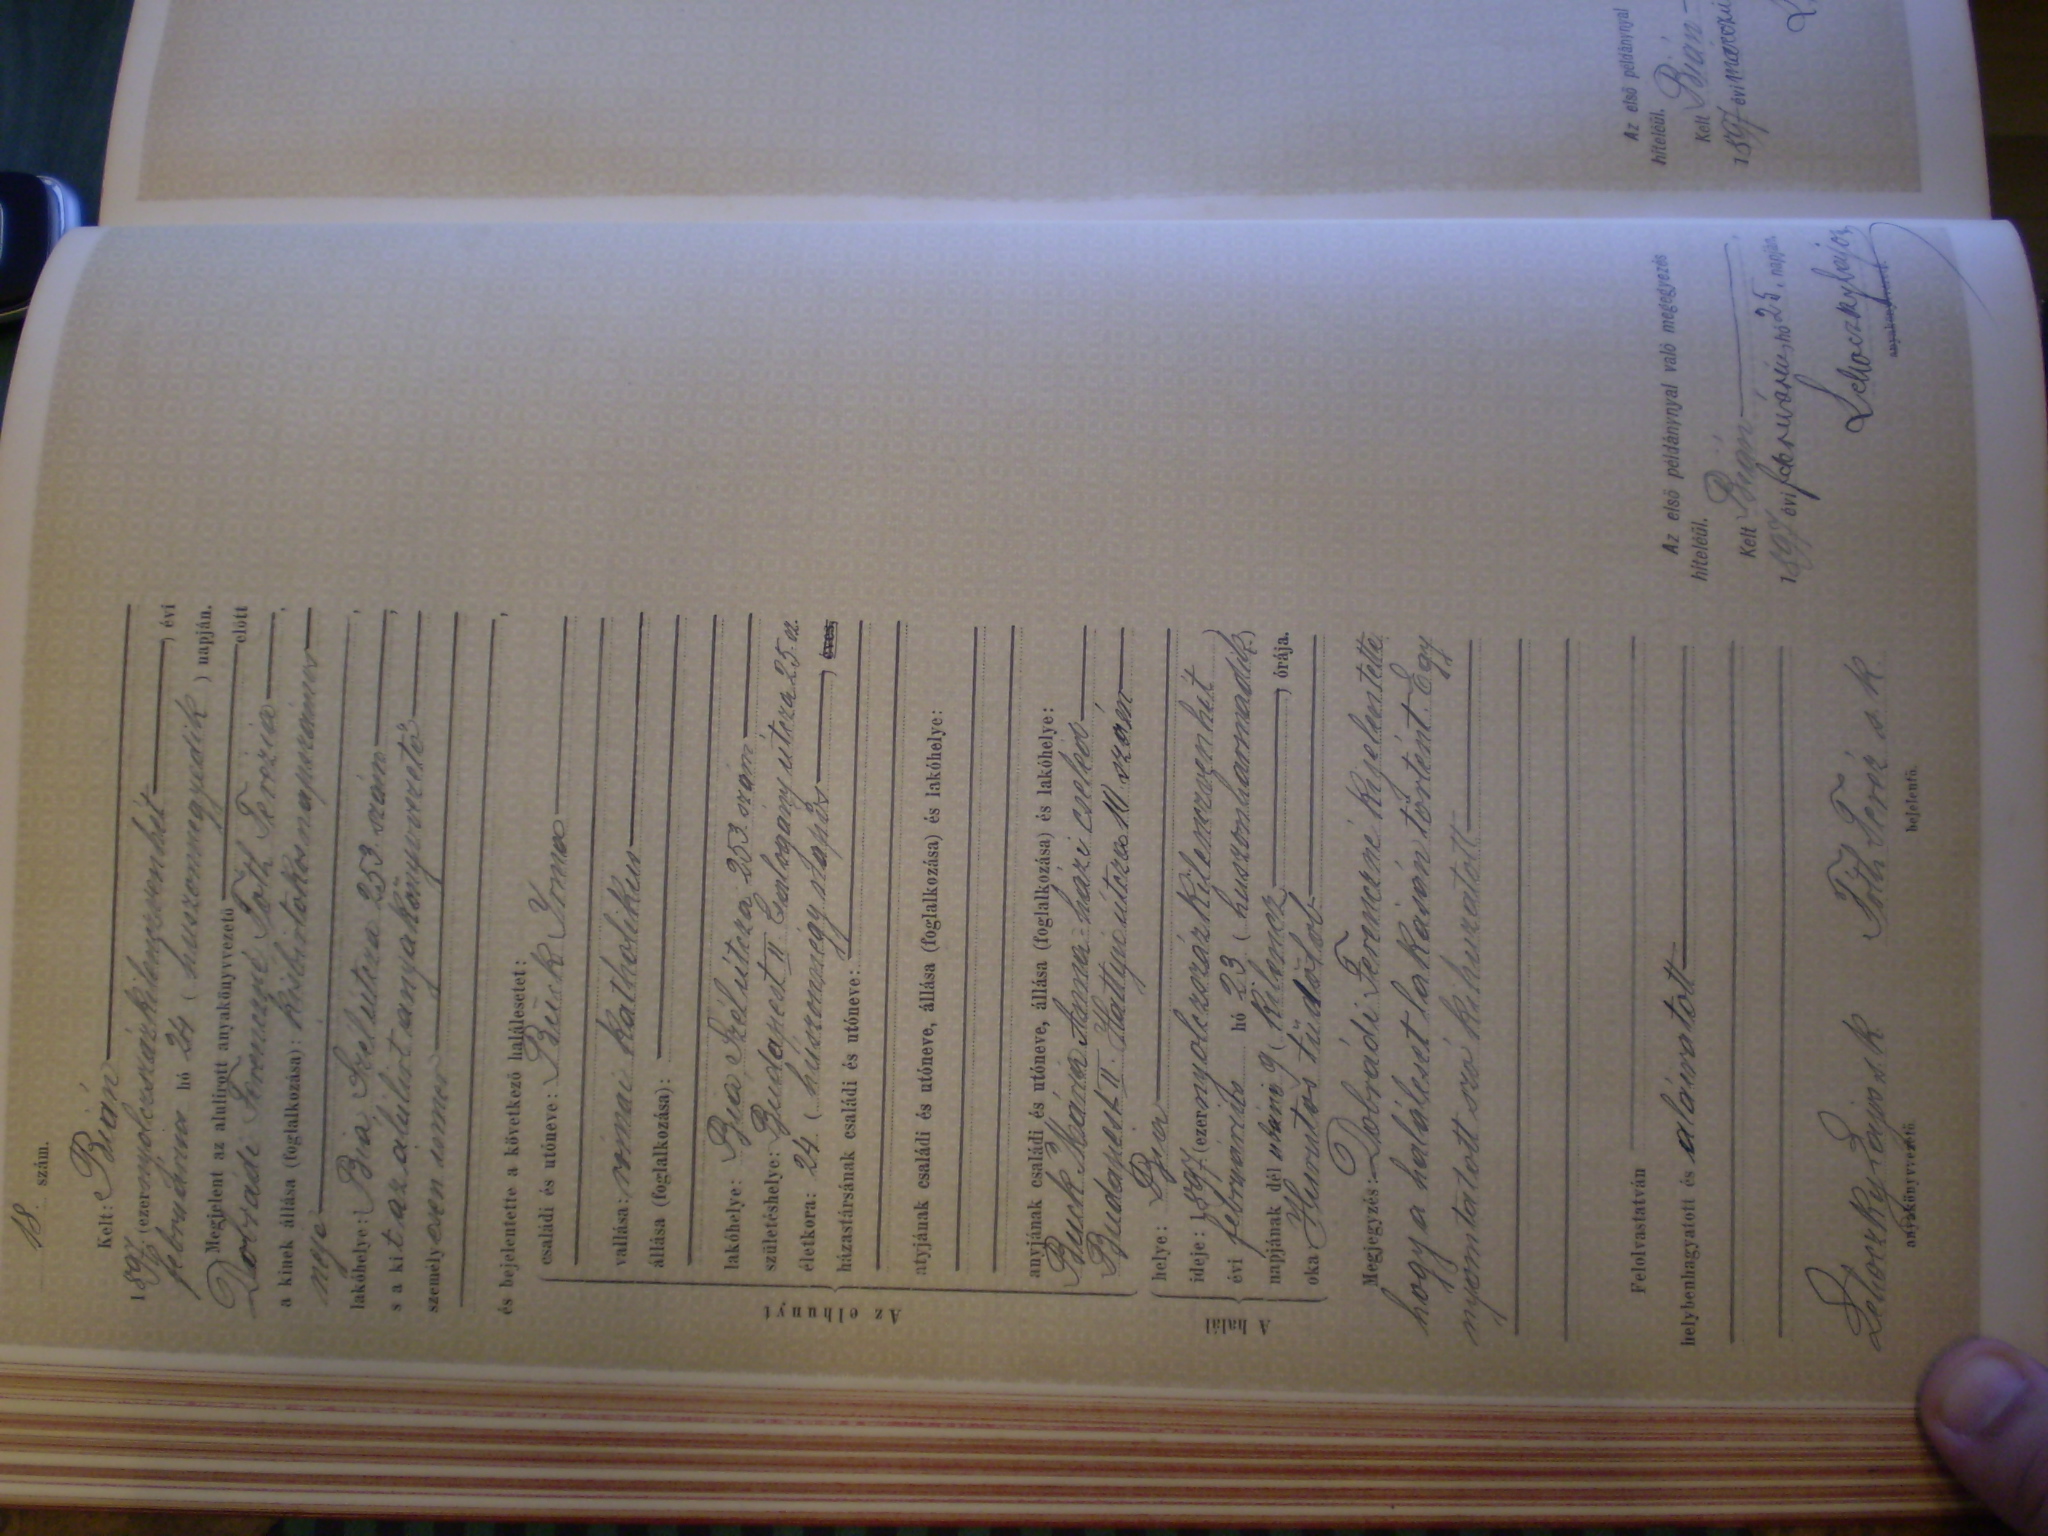 18. szám.
Kelt: Bián
1897 (ezernyolcszázkilenczvenhét), évi
február hó 24 (huszonnegyedik) napján.
Megjelent az alulírott anyakönyvvezető előtt
Dobrádi Ferenczné Tóth Terézia,
a kinek állása (foglalkozása): kisbirtokos napszámos
neje
lakóhelye: Bia, Szél útcza 253 szám,
s a kit az alulírt anyakönyvvezető,
személyesen ismer
és bejelentette a következő halálesetet:
Az elhunyt
családi és utóneve: Buck Irma
vallása: római katholikus
állása (foglalkozása):
lakóhelye: Bia, Szél útcza 253 szám
születéshelye: Budapest II Csalogány útcza 25. sz.
életkora: 24. (huszonnégy napos), éves,
házastársának családi és utóneve:
atyjának családi és utóneve, állása (foglalkozása) és lakóhelye:
anyjának családi és utóneve, állása (foglalkozása) és lakóhelye:
Buck Mária Anna házi cseléd
Budapest II. Hattyú útcza 10 szám
A halál
helye: Bia
ideje: 1897. (ezernyolczszázkilenczvenhét)
évi február hó 23 (huszonharmadik)
napjának dél utáni 9 (kilencz), órája.
oka Hurutos tüdőlob
Megjegyzés: Dobrádi Ferenczné kijelentette,
hogy a haláleset lakásán történt. Egy
nyomtatott szó kihuzatott
Felolvastatván
helybenhagyatott és aláiratott
Lehoczky Lajos s. k. Tóth Teréz s. k
anyakönyvvezető bejelentő.
Az első példánynyal való megegyezés
hiteléül.
Kelt Bián
1897 évi február hó 25. napján.
Lehoczky Lajos
Az első példánynyal
hiteléül.
Kelt Bián
1897 évi